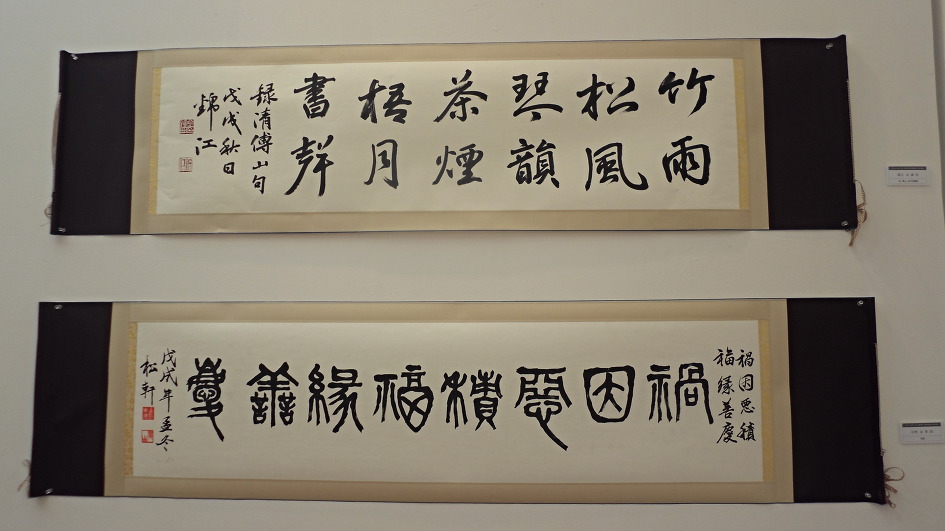 竹雨
松風
琴韻
茶煙
梧月
書聲
録清傅山句
戊戌秋日
錦江
禍因惡積
福緣善慶
禍因惡積福緣善慶
戊戌年孟冬
松軒